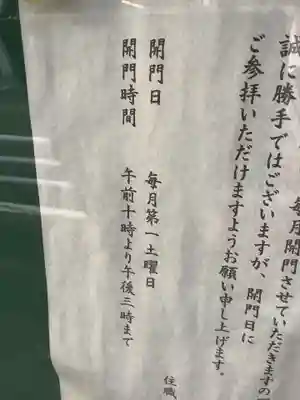 毎月開門させていただきますの
誠に勝手ではございますが、開門日に
ご参拝いただけますようお願い申し上げます。
開門日　毎月第一土曜日
開門時間　午前十時より午後三時まで
住職